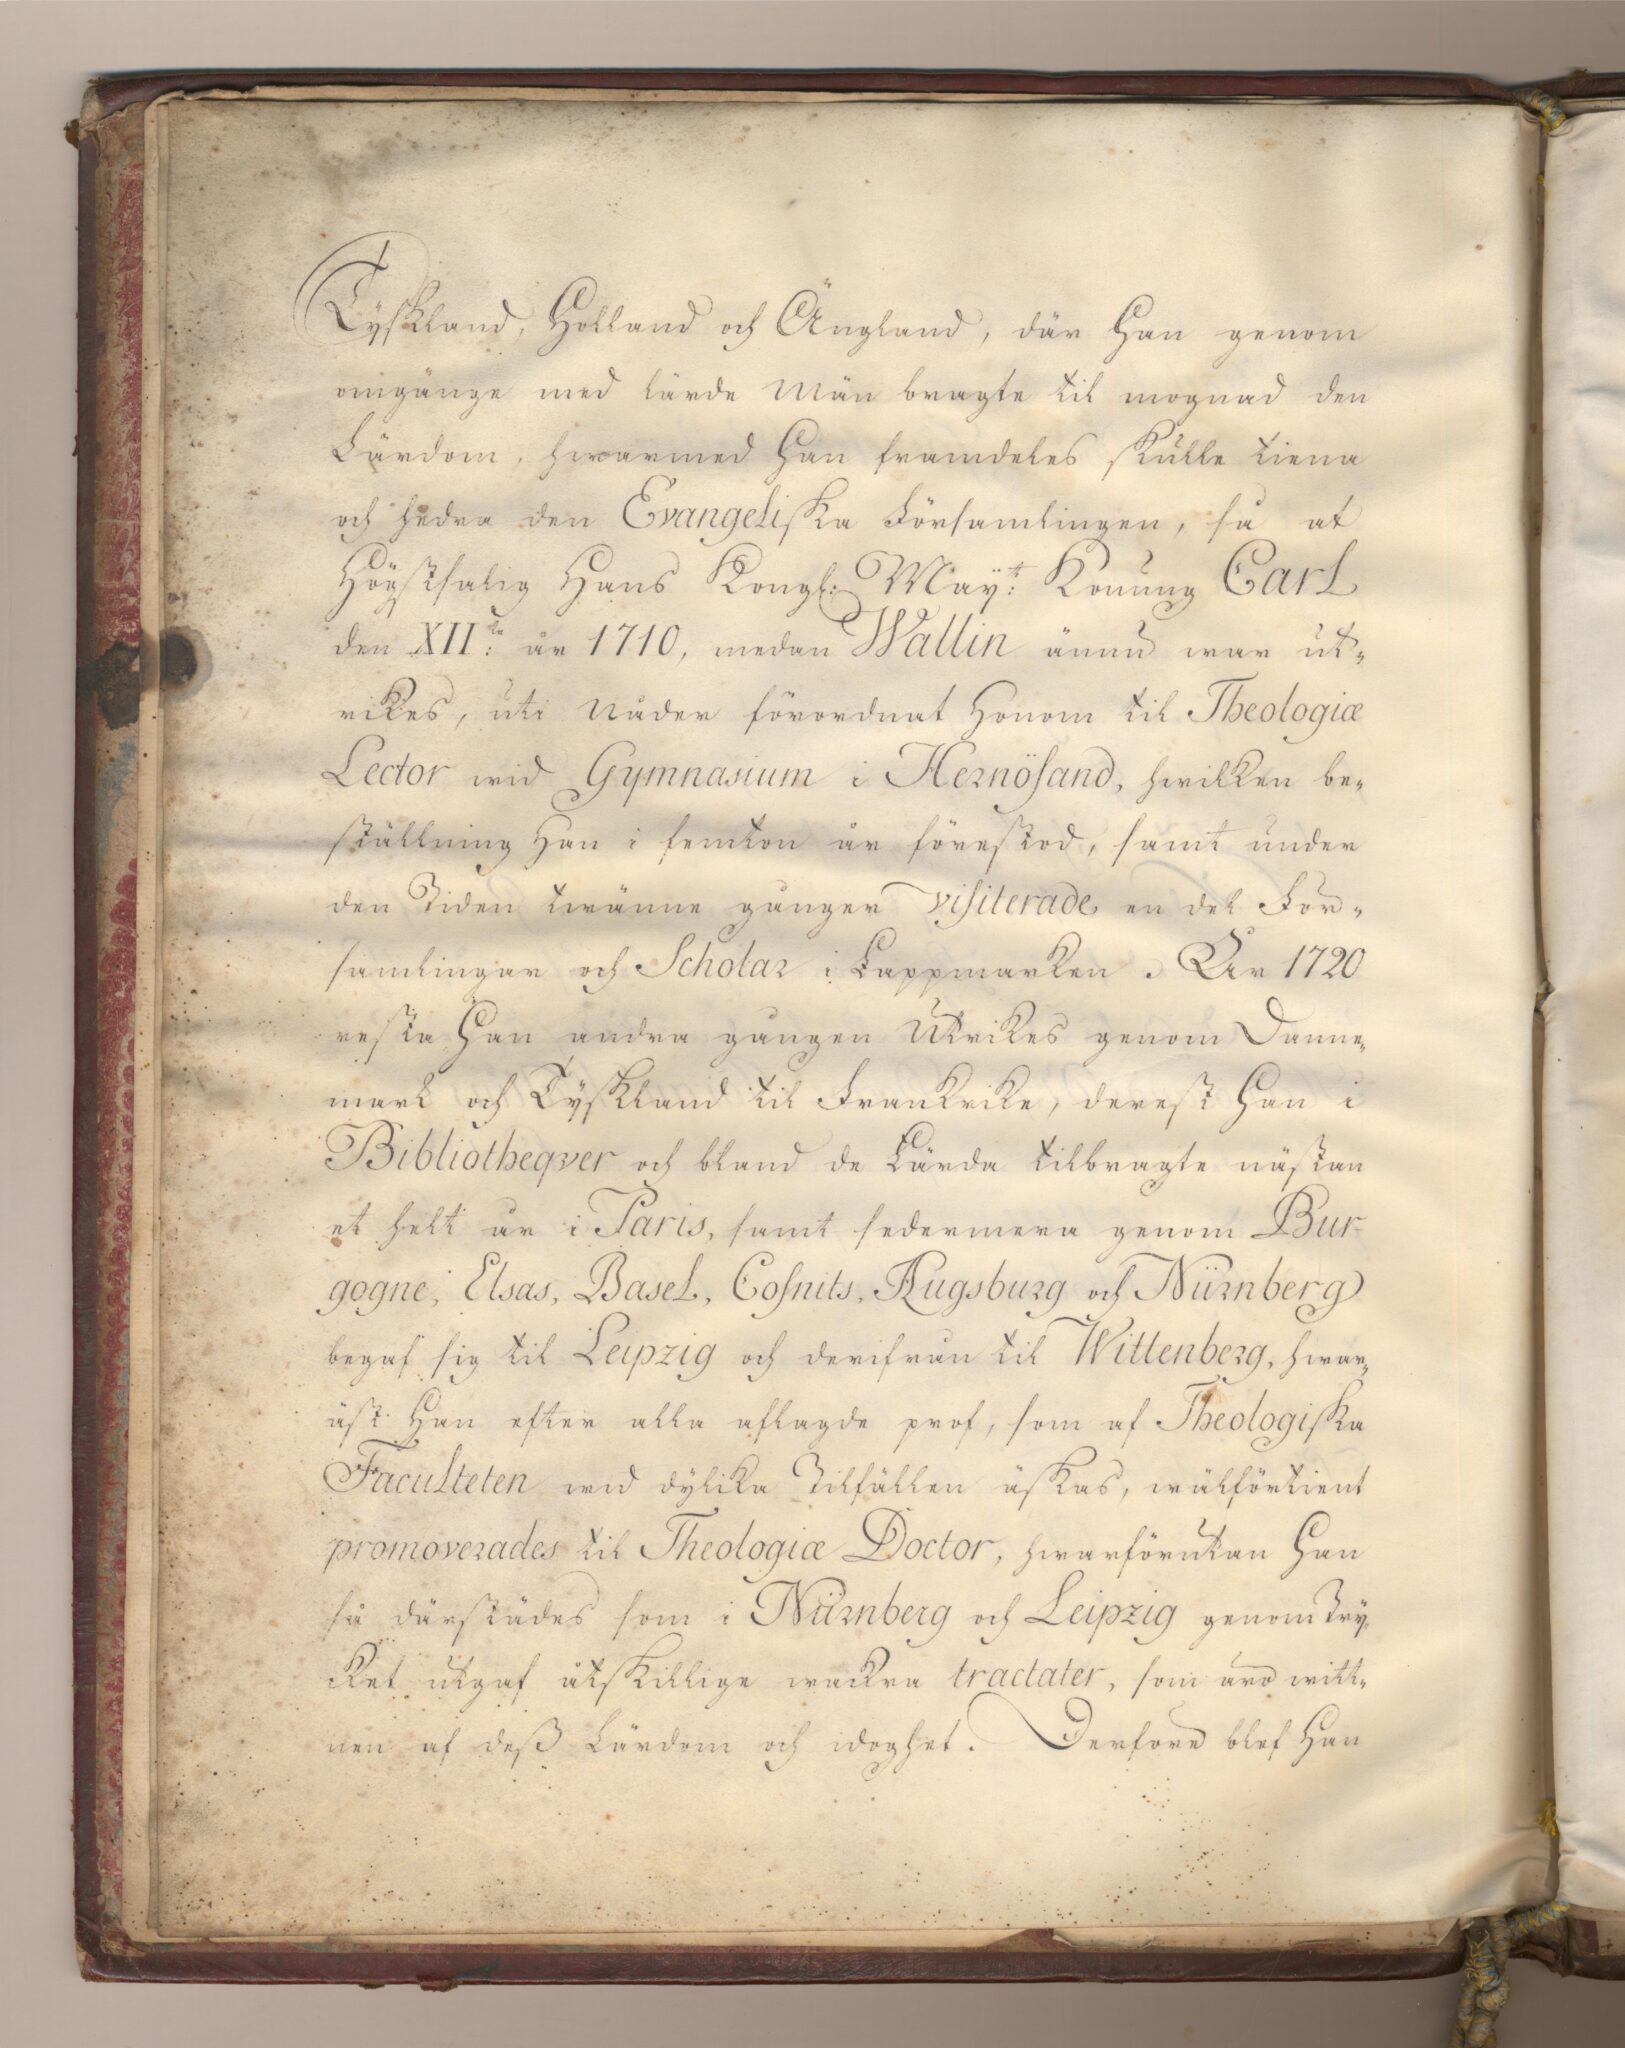 Tyskland, Holland och Ängland, där Han genom
omgänge med lärde Män bragte til mognad den
Lärdom, hwarmed Han framdeles skulle tiena
och hedra den Evangeliska Församlingen, så at
Högstsalig Hans Kongl: Mayt: Konung Carl
den XII:te år 1710, medan Wallin ännu war ut-
rikes, uti Nåder förordnat Honom til Theologiæ
Lector wid Gymnasium i Hernösand, hwilken be-
ställning Han i femton år förestod, samt under
den Tiden twänne gånger visiterade en del För-
samlingar och Scholar i Lappmarken. År 1720
resta Han andra gången Utrikes genom Danne-
mark och Tyskland til Frankrike, derest Han i
Bibliotheqver och bland de Lärda tilbragte nästan
et helt år i Paris, samt sedermera genom Bur-
gogne, Elsas, Basel, Cosnits, Augsburg och Nürnberg
begaf sig til Leipzig och derifrån til Wittenberg, hwar-
äst Han efter alla aflagde prof, som af Theologiska
Faculteten wid dylika Tilfällen äskas, wälförtient
promoverades til Theologiæ Doctor, hwarförutan Han
så därstädes som i Nürnberg och Leipzig genom Try-
cket utgaf åtskillige wackra tractater, som äro witt-
nen af deß Lärdom och idoghet. Derfore blef Han